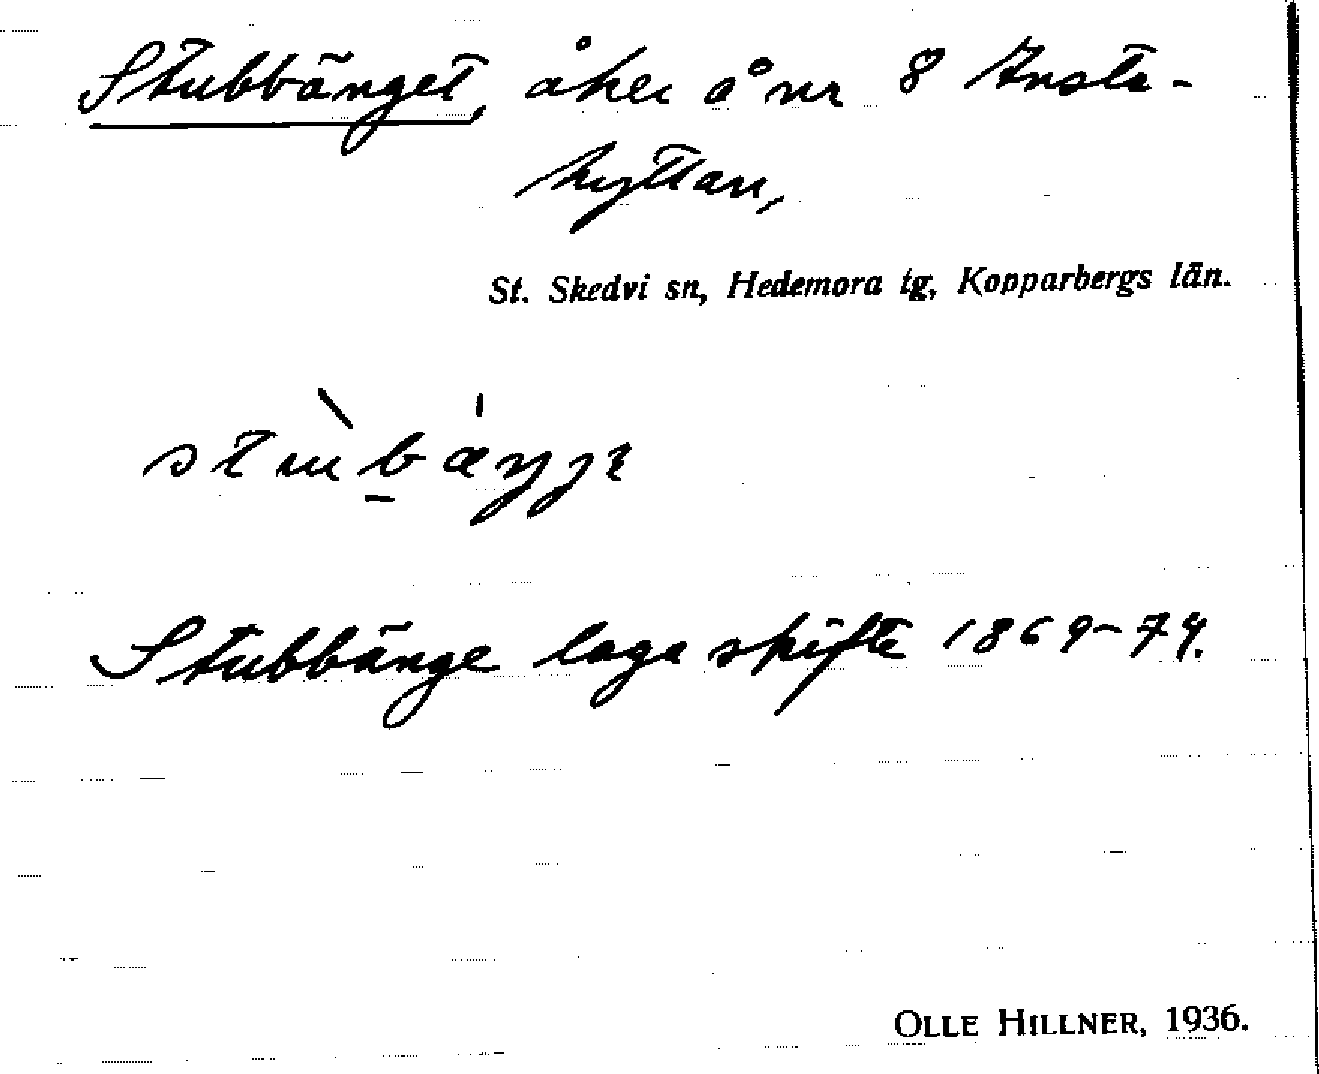 Stubbänget, åker å nr 8 Knsta-
hyttan,
St. Skedvi sn, Hedemora tg, Kopparbergs län.
Stubbänge laga skifte 1869-74.
OLLE HILLNER, 1936.